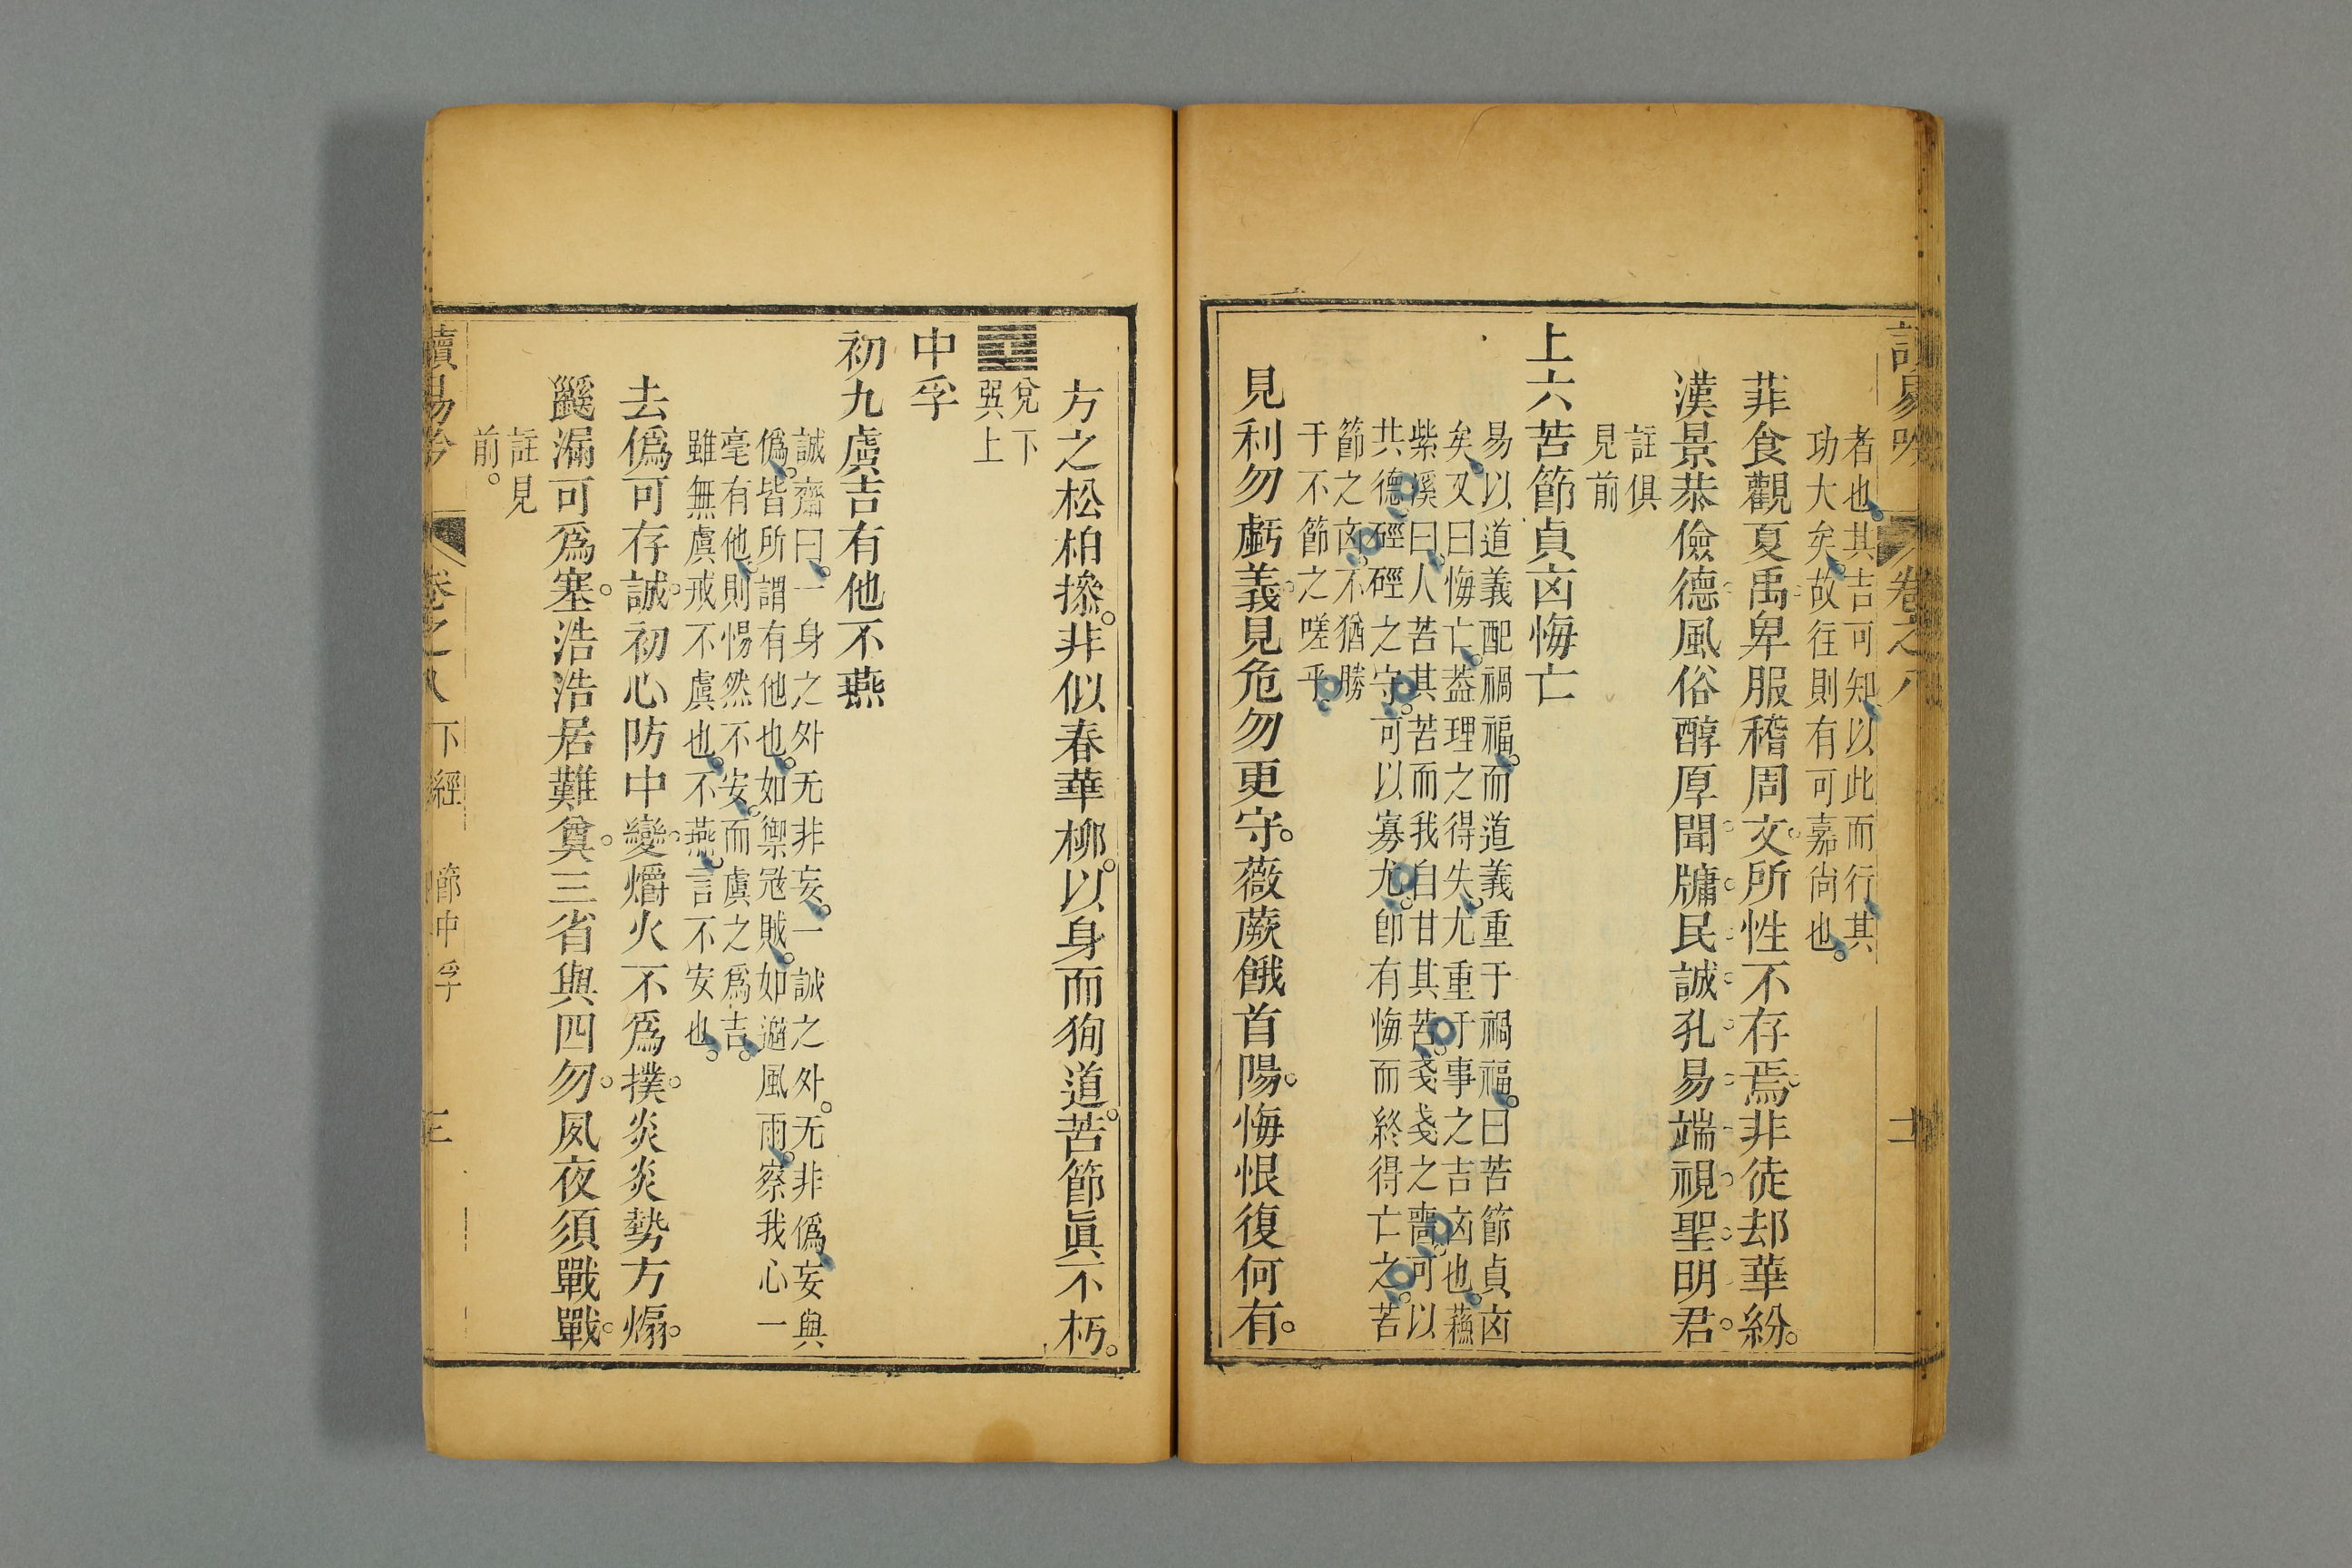 讀易吟
卷之八
十二
者也其吉可知以此而行其
功大矣故往則有可嘉尚也
菲食觀夏禹卑服稽周文所性不存焉非徒却華紛
漢景恭儉德風俗醇厚聞牗民誠孔易端視聖明君
註俱
見前
上六苦節貞凶悔亡
易以道義配禍福而道義重于禍福曰苦節貞凶
矣又曰悔亡葢理之得失尤重于事之吉凶也蘓
紫溪曰人苦其苦而我自甘其苦戔戔之嗇可以
共德硜硜之守可以寡尤卽有悔而終得亡之苦
節之凶不猶勝
于不節之嗟乎
見利勿虧義見危勿更守薇蕨餓首陽悔恨復何有
方之松柏摻非似春華柳以身而狥道苦節眞不朽
兌下
巽上
中孚
初九虞吉有他不燕
誠齋曰一身之外无非妄一誠之外无非僞妄與
僞皆所謂有他也如禦冦賊如避風雨察我心一
毫有他則惕然不安而虞之爲吉
雖無虞戒不虞也不燕言不安也
去僞可存誠初心防中變爝火不爲撲炎炎勢方煽
鼷漏可爲塞浩浩居難奠三省與四勿夙夜須戰戰
註見
前
讀易吟
卷之八
下經
節中孚